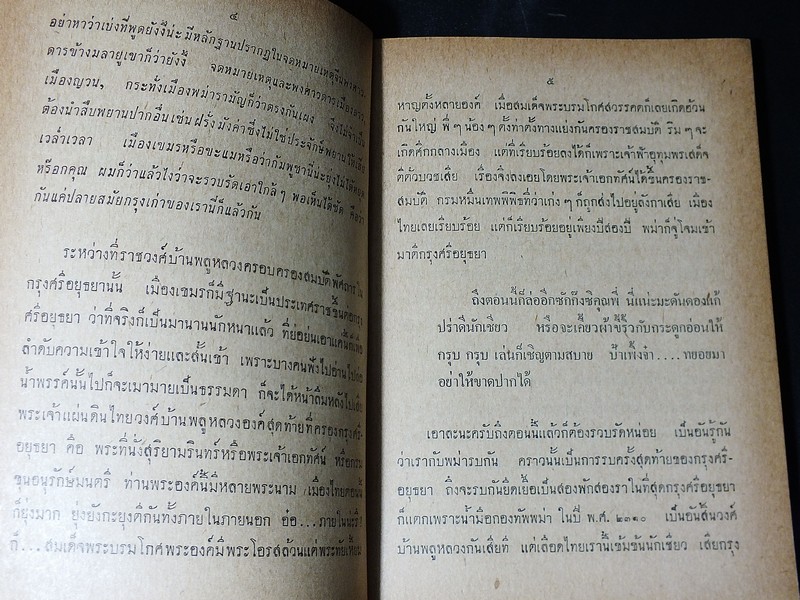 ๔
อย่าหาว่าเบ่งที่พูดยังงี้น่ะ มีหลักฐานปรากฏในจดหมายเหตุจีน
ดารข้างมลายูเขาก็ว่ายังงี้ จดหมายเหตุและพงศาวดารเมือง
เมืองญวน, กระทั่งเมืองพม่ารามัญก็ว่าตรงกันเผง จึงไม่จำเป็น
ต้องนำสืบพยานปากอื่นเช่นฝรั่งมังค่าซึ่งไม่ใช่ประจักษ์พยานให้เสีย
เวล่ำเวลา เมืองเขมรหรือขะแมหรือว่ากัมพูชานี่น่ะยุ่งไม่ได้หยุด
หรอกคุณ ผมก็ว่าแล้วไงว่าจะรวบรัดเอาใกล้ ๆ พอเห็นได้ชัด คือว่า
กันแค่ปลายสมัยกรุงเก่าของเรานี่ก็แล้วกัน
ระหว่างที่ราชวงศ์บ้านพลูหลวงครอบครองสมบัติพัศถานใน
กรุงศรีอยุธยานั้น เมืองเขมรก็มีฐานะเป็นประเทศราชขึ้นต่อกรุง
ศรีอยุธยา ว่าที่จริงก็เป็นมานานนักหนาแล้ว ที่ย่อย่นเอาแค่นี้เพื่อ
ลำดับความเข้าใจให้ง่ายและสั้นเข้า เพราะบางคนฟังไปอ่านไปกอด
น้ำพรรค์นั้นไปก็จะเมามายเป็นธรรมดา ก็จะได้หน้าลืมหลังไปเสีย
พระเจ้าแผ่นดินไทยวงศ์บ้านพลูหลวงองค์สุดท้ายที่ครองกรุงศรี-
อยุธยา คือ พระที่นั่งสุริยามรินทร์หรือพระเจ้าเอกทัศน์ หรือกรม
ขุนอนุรักษ์มนตรี ท่านพระองค์นี้มีหลายพระนาม เมืองไทยตอนนั้น
ก็ยุ่งมาก ยุ่งยังกะยุงตีกันทั้งภายในภายนอก อ๋อ...ภายในน่ะรึ
ก็...สมเด็จพระบรมโกศพระองค์มีพระโอรสล้วนแต่พระทัยเหี้ยม
๕
หาญตั้งหลายองค์ เมื่อสมเด็จพระบรมโกศสวรรคตก็เลยเกิดฮ้วน
กันใหญ่ พี่ ๆ น้อง ๆ ตั้งท่าตั้งทางแย่งกันครองราชสมบัติ ริม ๆ จะ
เกิดศึกกลางเมือง แต่ที่เรียบร้อยลงได้ก็เพราะเจ้าฟ้าอุทุมพรเสด็จ
ตีตั๋วบวชเสีย เรื่องจึงลงเอยโดยพระเจ้าเอกทัศน์ได้ขึ้นครองราช-
สมบัติ กรมหมื่นเทพพิพิธที่ว่าเก่ง ๆ ก็ถูกส่งไปอยู่ลังกาเสีย เมือง
ไทยเลยเรียบร้อย แต่ก็เรียบร้อยอยู่เพียงปีสองปี พม่าก็จู่โจมเข้า
มาตีกรุงศรีอยุธยา
ถึงตอนนี้ก็ล่ออีกซักกั๊งซิคุณพี่ นี่แน่ะมะดันดองแก้
ปร่าดีนักเชียว หรือจะเคี้ยวผ้าขี้ริ้วกับกระดูกอ่อนให้
กรุบ กรุบ เล่นก็เชิญตามสบาย บ้าเพ็งจ๋า....ทยอยมา
อย่าให้ขาดปากได้
เอาละนะครับถึงตอนนี้แล้วก็ต้องรวบรัดหน่อย เป็นอันรู้กัน
ว่าเรากับพม่ารบกัน คราวนั้นเป็นการรบครั้งสุดท้ายของกรุงศรี-
อยุธยา ถึงจะรบกันยืดเยื้อเป็นสองพักสองราในที่สุดกรุงศรีอยุธยา
ก็แตกเพราะน้ำมือกองทัพพม่า ในปี พ.ศ. ๒๓๑๐ เป็นอันสิ้นวงศ์
บ้านพลูหลวงกันเสียที แต่เลือดไทยเรานี้เข้มข้นนักเชียว เสียกรุง